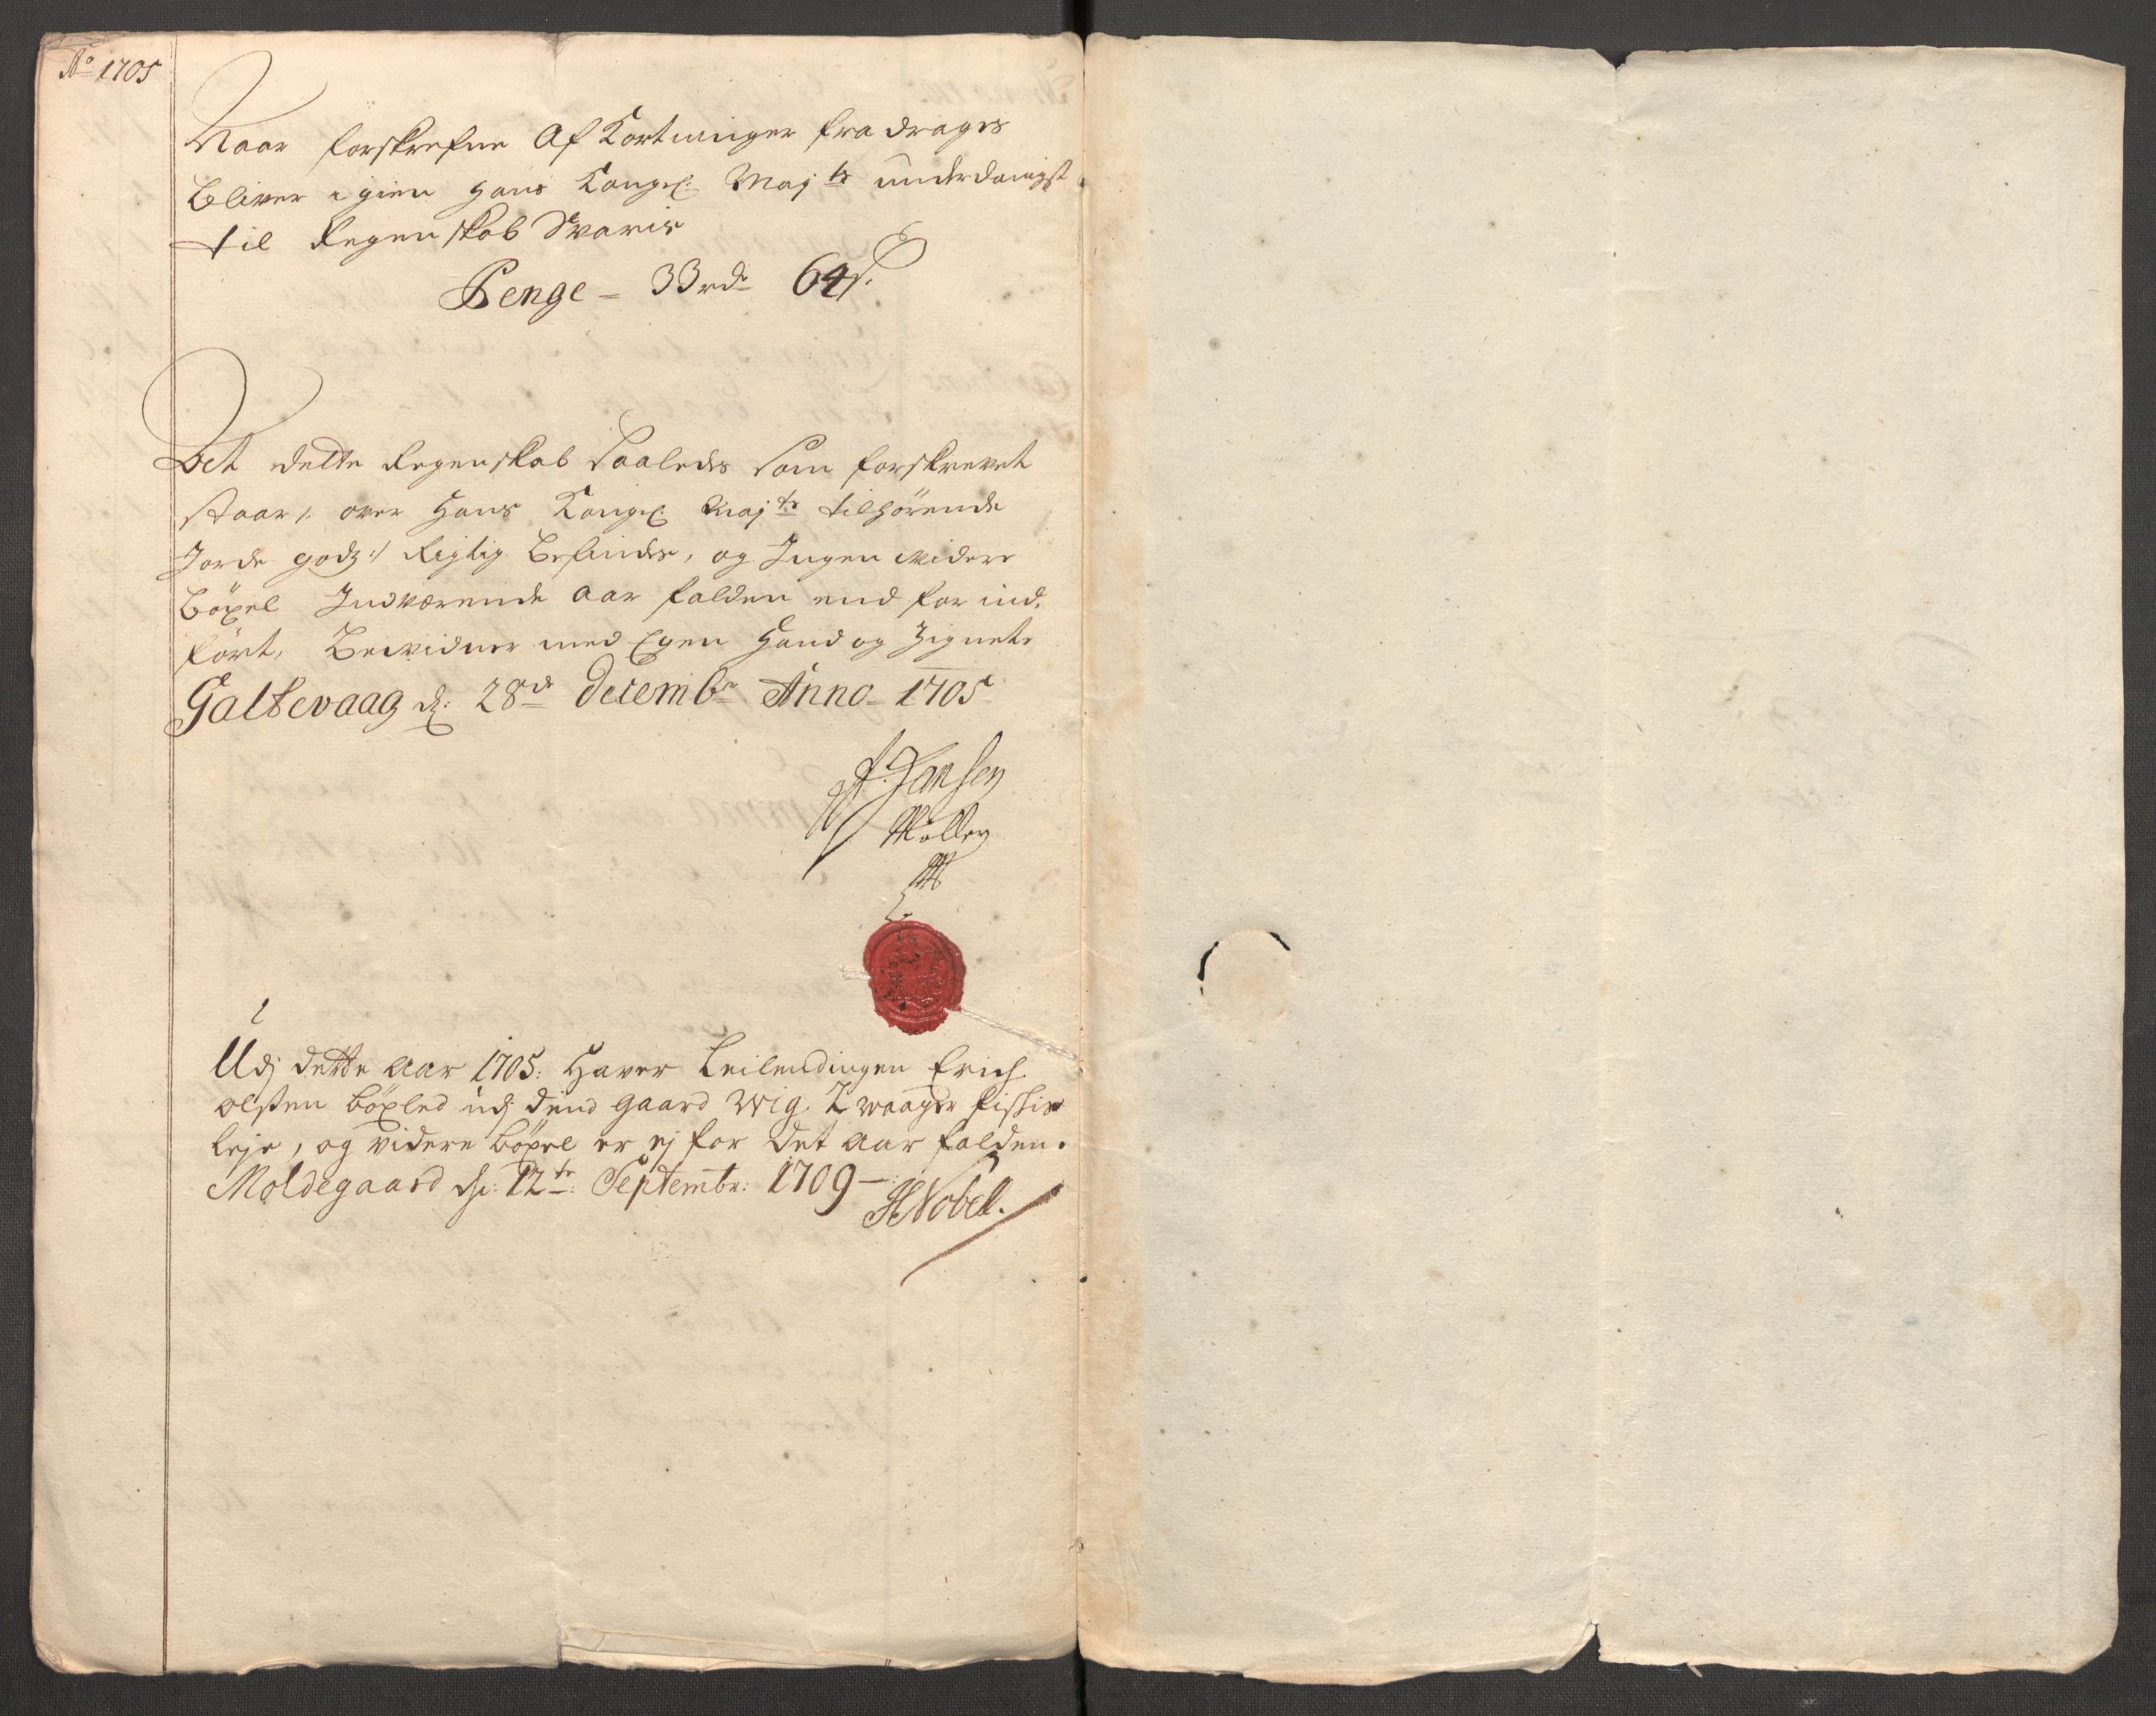 Ao 1705
Naar forskrefne Af Kortninger fra drages
bliver igien Hans Kongel: Majts underdanigst
til Regenskab Svaris
Penge = 33 rd 64 s.
Det dette Regenskab Saaledes Som forskrevet
staar /: over Hans Kongel: Majts tilhörende
Jorde godz :/ Rigtig befindes, og Ingen videre
böxel Indværende aar falden end for ind-
fört, Bevidner med Egen Haand og Zignete
Galtevaag d: 28de Decembr Anno 1705
Jansen
Möller
Udj dette aar 1705: Haver Leilendingen Erich
olssen böxled udj dend gaard Wig. Z waager fischis
leje, og videre böxel er ej for det aar falden.
Moldegaard d: 12te: Septembr: 1709
HNobell.